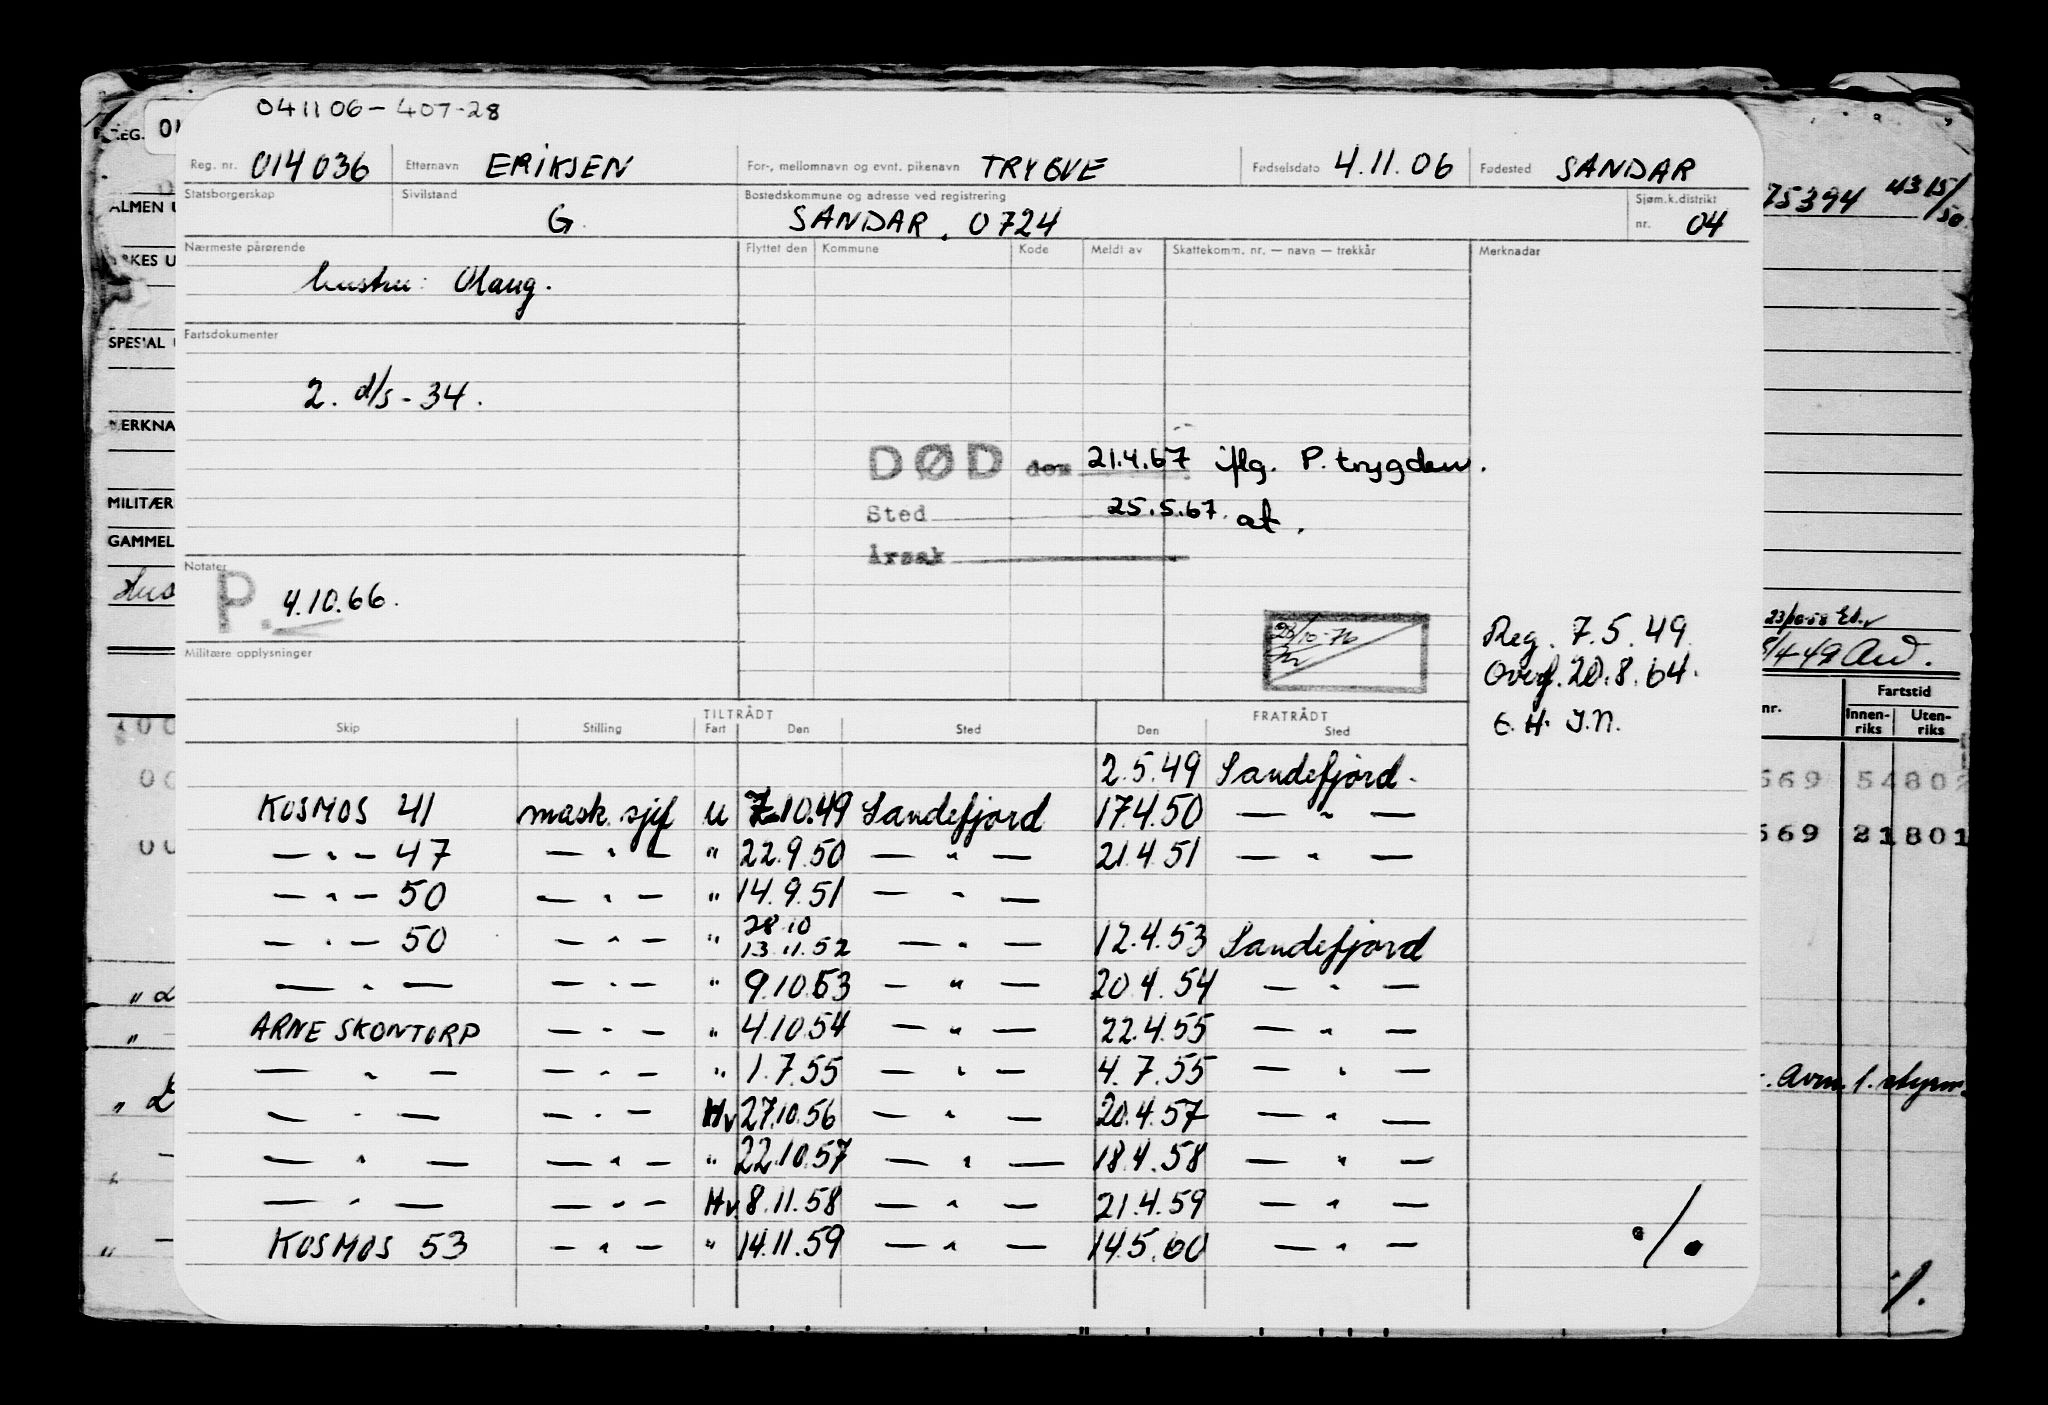 041106-407-28
Reg. nr. 014036 Etternavn ERIKSEN For-, mellomnavn og evnt. pikenavn TRYGVE Fødselsdato 4.11.06 Fødested SANDAR
Statsborgerskap Sivilstand G. Bostedskommune og adresse ved registrering SANDAR, 0724 Sjøm.k.distrikt nr. 04
Nærmeste pårørende Flyttet den Kommune Kode Meldt av Skattekomm. nr. — navn — trekkår Merknadar
hustru: Olaug.
Fartsdokumenter
2. d/s - 34.
DØD den 21.4.67 iflg. P. trygden.
Sted 25.5.67. at.
Årsak
Notater
P. 4.10.66.
Militære opplysninger
Reg. 7.5.49.
Overf. 20.8.64.
E. H. J.N.
TILTRÅDT FRATRÅDT
Skip Stilling Fart Den Sted Den Sted
2.5.49 Sandefjord.
KOSMOS 41 mask. sjef U 7.10.49 Sandefjord 17.4.50 — " —
— " — 47 — " — " 22.9.50 — " — 21.4.51 — " —
— " — 50 — " — " 14.9.51 — " —
— " — 50 — " — " 28.10 13.11.52 — " — 12.4.53 Sandefjord
— " — — " — " 9.10.53 — " — 20.4.54 — " —
ARNE SKONTORP — " — " 4.10.54 — " — 22.4.55 — " —
— " — — " — " 1.7.55 — " — 4.7.55 — " —
— " — — " — Hv 27.10.56 — " — 20.4.57 — " —
— " — — " — " 22.10.57 — " — 18.4.58 — " —
— " — — " — Hv 8.11.58 — " — 21.4.59 — " —
KOSMOS 53 — " — " 14.11.59 — " — 14.5.60 — " —
./.
SPESIAL
MILITÆR
GAMMEL
75394
Fartstid
nr. Innen-riks Uten-riks
569 5480
569 21801